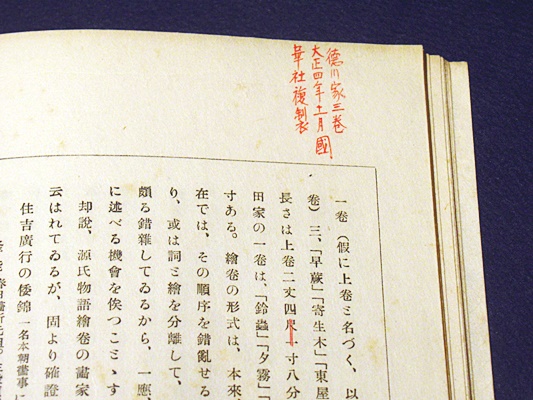 徳川家三巻
大正四年十一月國
華社複製
一卷(假に上卷ミ名づく、以
卷)三、「早蕨」「寄生木」「東屋
長さは上卷二丈四尺一寸八分
田家の一卷は、「鈴蟲」「夕霧」「
寸ある。繪卷の形式は、本來
在では、その順序を錯亂せる
り、或は詞ミ繪を分離して、
頗る錯雜してゐるから、一應、
に述べる機會を俟つこミゝす
却說、源氏物語繪卷の畫家
云はれてゐるが、固より確證
住吉廣行の倭錦一名本朝畫事に